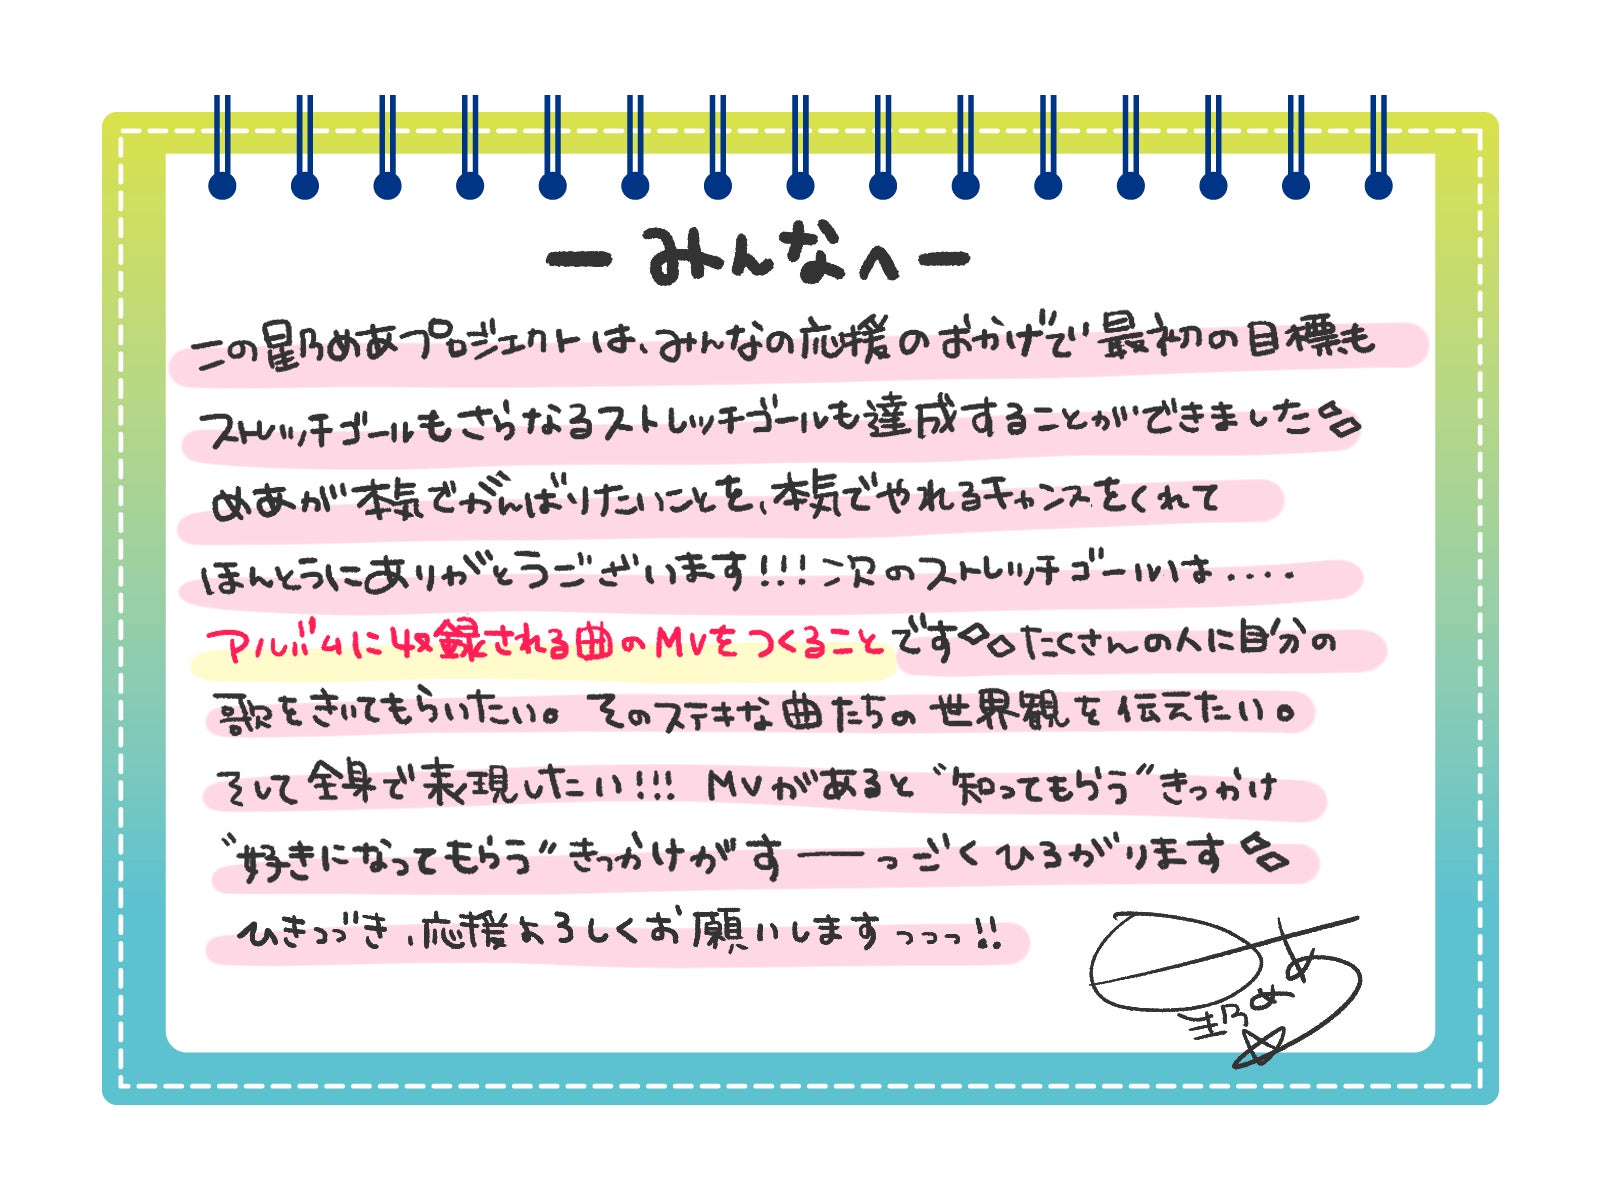 ーみんなへー
この星乃めあプロジェクトは、みんなの応援のおかげで最初の目標も
ストレッチゴールもさらなるストレッチゴールも達成することができました
めあが本気でがんばりたいことを、本気でやれるチャンスをくれて
ほんとうにありがとうございます!!!次のストレッチゴールは....
アルバムに収録される曲のMVをつくることですたくさんの人に自分の
歌をきいてもらいたい。そのステキな曲たちの世界観を伝えたい。
そして全身で表現したい!!! MVがあると"知ってもらう"きっかけ
"好きになってもらう"きっかけがすーーっごくひろがります
ひきつづき、応援よろしくお願いしますっっっ!!
星乃めあ